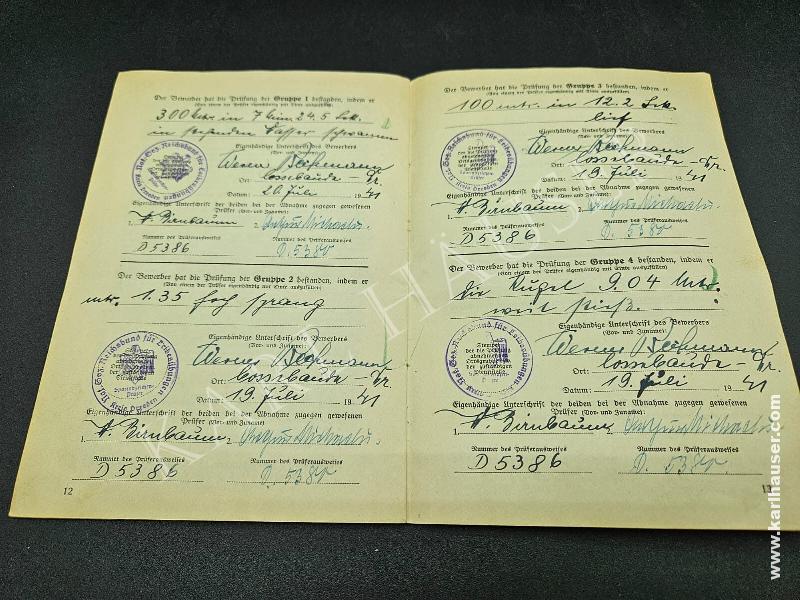 Der Bewerber hat die Prüfung der Gruppe 1 bestanden, indem er
(von einem der Prüfer eigenhändig mit Tinte auszufüllen)
300 mtr. in 7 Min 24,5 Sek.
in stehenden Wasser schwamm
Eigenhändige Unterschrift des Bewerbers
(Vor- und Zuname):
Werner Beckmann
Ort: Cossebaude - Dr.
Datum: 20. Juli 1941
Eigenhändige Unterschrift der beiden bei der Abnahme zugegen gewesenen
Prüfer (Vor- und Zuname):
1. A. Birnbaum
Nummer des Prüferausweises
Nummer des Prüferausweises
D 5386
D. 5380
Der Bewerber hat die Prüfung der Gruppe 2 bestanden, indem er
(von einem der Prüfer eigenhändig mit Tinte auszufüllen)
mtr. 1.35 hoch sprang
Nat.-Soz. Reichsbund für Leibesübungen
Kreis Dresden
Eigenhändige Unterschrift des Bewerbers
(Vor- und Zuname):
Werner Beckmann
Ort: Cossebaude - Dr.
Datum: 19. Juli 1941
Eigenhändige Unterschrift der beiden bei der Abnahme zugegen gewesenen
Prüfer (Vor- und Zuname):
1. A. Birnbaum
Nummer des Prüferausweises
Nummer des Prüferausweises
D 5386
D. 5380
12
Der Bewerber hat die Prüfung der Gruppe 3 bestanden, indem er
(von einem der Prüfer eigenhändig mit Tinte auszufüllen)
100 mtr. in 12.2 Sek.
lief
Eigenhändige Unterschrift des Bewerbers
(Vor- und Zuname):
Werner Beckmann
Ort: Cossebaude - Dr.
Datum: 19. Juli 1941
Eigenhändige Unterschrift der beiden bei der Abnahme zugegen gewesenen
Prüfer (Vor- und Zuname):
1. A. Birnbaum
Nummer des Prüferausweises
Nummer des Prüferausweises
D 5386
D. 5380
Der Bewerber hat die Prüfung der Gruppe 4 bestanden, indem er
(von einem der Prüfer eigenhändig mit Tinte auszufüllen)
die Kugel 9.04 mtr.
weit stieß.
Eigenhändige Unterschrift des Bewerbers
(Vor- und Zuname):
Werner Beckmann
Ort: Cossebaude - Dr.
Datum: 19. Juli 1941
Eigenhändige Unterschrift der beiden bei der Abnahme zugegen gewesenen
Prüfer (Vor- und Zuname):
1. A. Birnbaum
Nummer des Prüferausweises
Nummer des Prüferausweises
D 5386
D. 5380
13
www.karlhauser.com